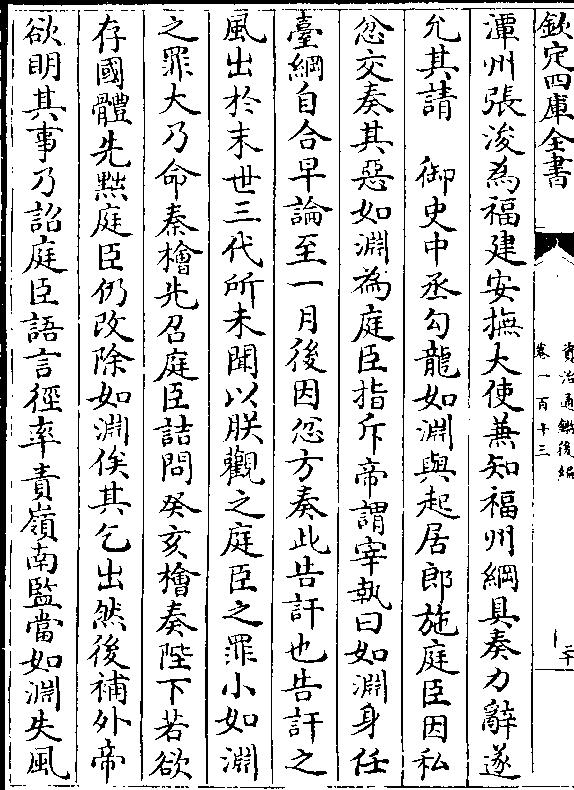 欽定四庫全書
資治通鑑後編
卷一百十三
二十
潭州張浚為福建安撫大使兼知福州綱具奏力辭遂
允其請　御史中丞勾龍如淵與起居郎施庭臣因私
忿交奏其惡如淵為庭臣指斥帝謂宰執曰如淵身任
臺綱自合早論至一月後因忿方奏此告訐也告訐之
風出於末世三代所未聞以朕觀之庭臣之罪小如淵
之罪大乃命秦檜先召庭臣詰問癸亥檜奏陛下若欲
存國體先黜庭臣仍改除如淵俟其乞出然後補外帝
欲明其事乃詔庭臣語言徑率責嶺南監當如淵失風